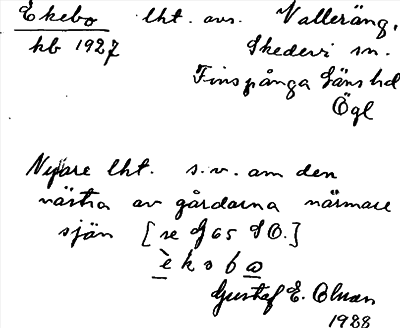 Ekebo lht. avs. Valleräng,
kb 1927 Skedevi sn.
Finspånga läns hd
Ögl
Nyare lht. s.v. om den
västra av gårdarna närmare
sjön [se GJ 65 SO.]
èkobo
Gustaf E. Olman
1928